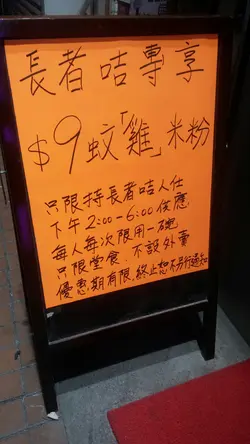 長者咭專享
$9蚊「雞」米粉
只限持長者咭人仕
下午2:00-6:00供應
每人每次限用一碗
只限堂食，不設外賣
優惠期有限，終止恕不另行通知